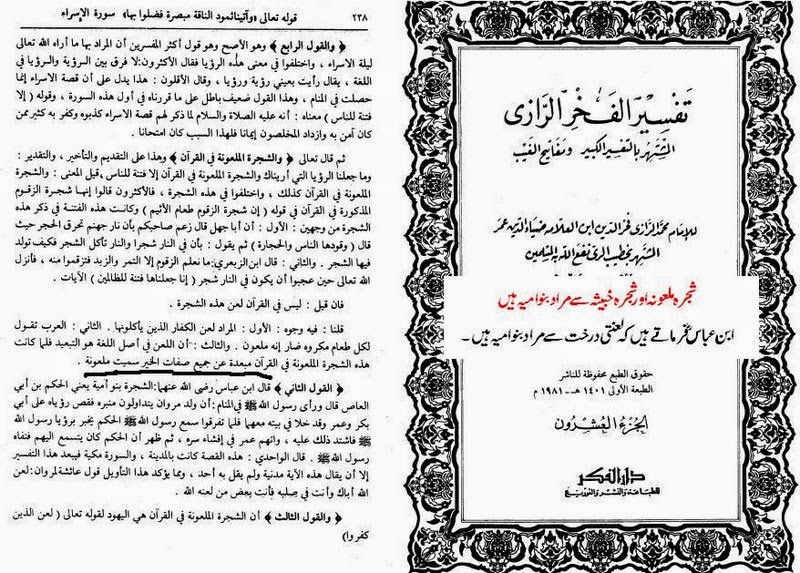 قوله تعالى «وآتينا ثمود الناقة مبصرة فظلموا بها» سورة الإسراء
٢٣٨
﴿ والقول الرابع ﴾ وهو الأصح وهو قول أكثر المفسرين أن المراد بها ما أراه الله تعالى
ليلة الاسراء ، واختلفوا في معنى هذه الرؤيا فقال الأكثرون: لا فرق بين الرؤية والرؤيا في
اللغة ، يقال رأيت بعيني رؤية ورؤيا ، وقال الأقلون : هذا يدل على أن قصة الاسراء إنما
حصلت في المنام ، وهذا القول ضعيف باطل على ما قررناه في أول هذه السورة ، وقوله ( إلا
فتنة للناس ) معناه : أنه عليه الصلاة والسلام لما ذكر لهم قصة الاسراء كذبوه وكفر به كثير ممن
كان آمن به وازداد المخلصون إيمانا فلهذا السبب كان امتحانا .
ثم قال تعالى ﴿ والشجرة الملعونة في القرآن ﴾ وهذا على التقديم والتأخير ، والتقدير :
وما جعلنا الرؤيا التي أريناك والشجرة الملعونة في القرآن إلا فتنة للناس ، قيل المعنى : والشجرة
الملعونة في القرآن كذلك ، واختلفوا في هذه الشجرة ، فالأكثرون قالوا إنها شجرة الزقوم
المذكورة في القرآن في قوله ( إن شجرة الزقوم طعام الأثيم ) وكانت هذه الفتنة في ذكر هذه
الشجرة من وجهين : الأول : أن أبا جهل قال زعم صاحبكم بأن نار جهنم تحرق الحجر حيث
قال ( وقودها الناس والحجارة ) ثم يقول : بأن في النار شجرا والنار تأكل الشجر فكيف تولد
فيها الشجر . والثاني : قال ابن الزبعري: ما نعلم الزقوم إلا التمر والزبد فتزقموا منه ، فأنزل
الله تعالى حين عجبوا أن يكون في النار شجر ( إنا جعلناها فتنة للظالمين ) الآيات .
فان قيل : ليس في القرآن لعن هذه الشجرة .
قلنا : فيه وجوه : الأول : المراد لعن الكفار الذين يأكلونها . الثاني : العرب تقول
لكل طعام مكروه ضار إنه ملعون . والثالث : أن اللعن في أصل اللغة هو التبعيد فلما كانت
هذه الشجرة الملعونة في القرآن مبعدة عن جميع صفات الخير سميت ملعونة .
﴿ القول الثاني ﴾ قال ابن عباس رضي الله عنهما : الشجرة بنو أمية يعني الحكم بن أبي
العاص قال ورأى رسول الله ﷺ في المنام : أن ولد مروان يتداولون منبره فقص رؤياه على أبي
بكر وعمر وقد خلا في بيته معهما فلما تفرقوا سمع رسول الله ﷺ الحكم يخبر برؤيا رسول الله
ﷺ فاشتد ذلك عليه ، واتهم عمر في إفشاء سره ، ثم ظهر أن الحكم كان يتسمع اليهم فنفاه
رسول الله ﷺ . قال الواحدي : هذه القصة كانت بالمدينة ، والسورة مكية فيبعد هذا التفسير
إلا أن يقال هذه الآية مدنية ولم يقل به أحد ، ومما يؤكد هذا التأويل قول عائشة لمروان : لعن
الله أباك وأنت في صلبه فأنت بعض من لعنه الله .
﴿ والقول الثالث ﴾ أن الشجرة الملعونة في القرآن هي اليهود لقوله تعالى ( لعن الذين
كفروا )
تفسير الفخر الرازي
المشتهر بالتفسير الكبير ومفاتيح الغيب
للإمام محمد الرازي فخر الدين ابن العلامة ضياء الدين عمر
المشتهر بخطيب الري نفع الله به المسلمين
شجرہ ملعونہ اور شجرہ خبیثہ سے مراد بنو امیہ ہیں
ابن عباس فرماتے ہیں کہ لعنتی درخت سے مراد بنو امیہ ہیں ۔
حقوق الطبع محفوظة للناشر
الطبعة الأولى ١٤٠١ هـ - ١٩٨١ م
الجزء العشرون
دار الفكر
للطباعة والنشر والتوزيع